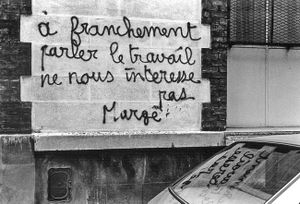 à franchement
parler le travail
ne nous intéresse
pas
Margê!